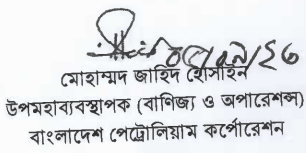 মোহাম্মদ জাহিদ হোসাইন
উপমহাব্যবস্থাপক (বাণিজ্য ও অপারেশন্স)
বাংলাদেশ পেট্রোলিয়াম কর্পোরেশন